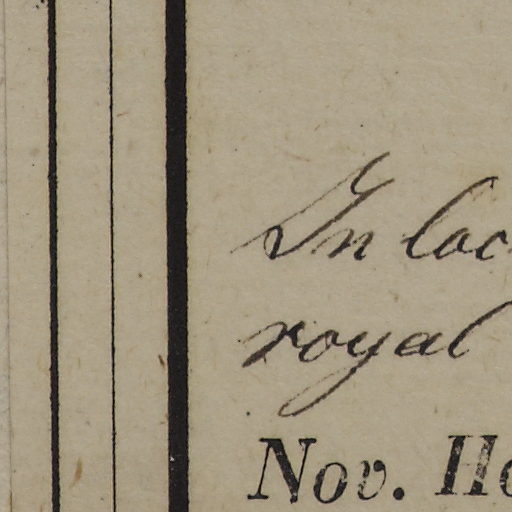 In loc
royal
Nov. Ho